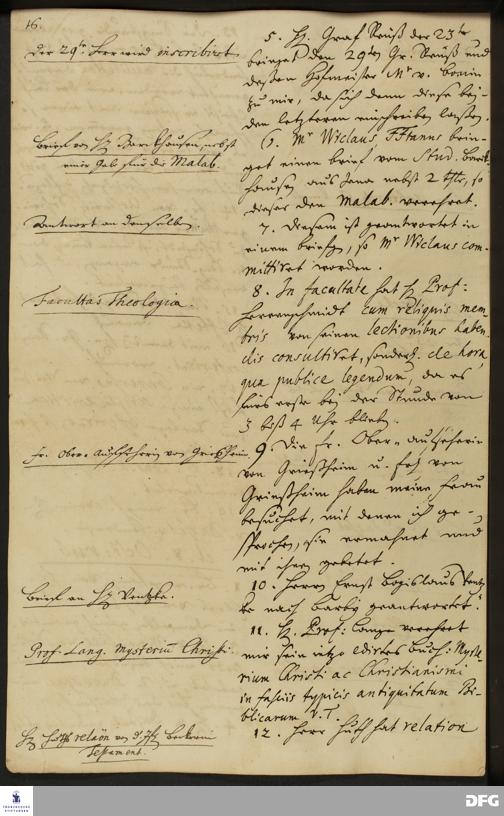 16.
Der 29te Herr wird inscribiret.
Brief von H. Barckhausen, nebst
einer Gabe für die Malab.
Antwort an denselben.
Facultas Theologica.
Fr. Ober-Aufseherin von Grießheim.
Brief an H. Ventzke.
Prof. Lang. Mysteriū Christi.
Testament.
5. H. Graf Reuß der 23te
bringet den 29ten Gr. Reuß und
deßen Hofmeister Mr v. Bonin
zu mir, da sich denn diese bey-
den letzteren einschreiben laßen.
6. Mr Wiclaus, brin-
get einen brief vom Stud. Barck-
hausen aus Jena nebst 2 so
dieser den Malab. verehret.
7. Diesem ist geantwortet in
einem briefe, so Mr Wiclaus com-
mittiret worden.
8. In facultate hat H. Prof:
Herrenschmidt cum reliquis mem-
bris von seinen lectionibus haben-
dis consultiret, sonderl. de hora,
qua publice legendum, da es
fürs erste bey der Stunde von
3 biß 4 Uhr blieb.
9. Die Fr. Ober-Aufseherin
von Grießheim u. von
Grießheim haben meine Frau
besuchet, mit denen ich ge-
sprochen, sie ermahnet und
mit ihnen gebetet.
10. Herrn Ernst Bogislaus Ventz-
ke nach Barby geantwortet.
11. H. Prof: Lange verehret
mir sein itzo edirtes buch: Myste-
rium Christi ac Christianismi
in fasciis typicis antiquitatum Bi-
blicarum V. T.
12. Herr Huth hat relation
DFG